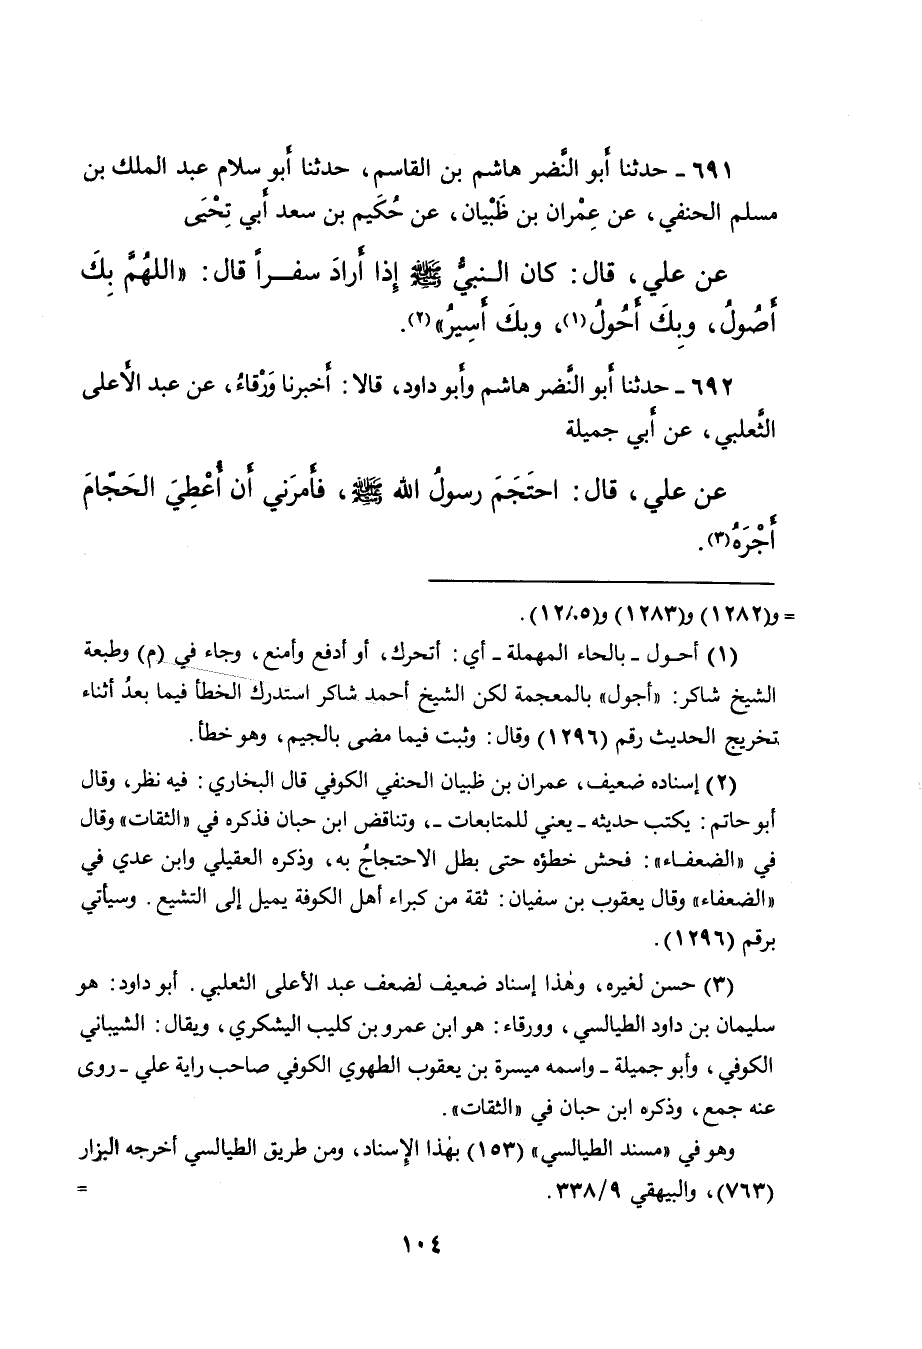 ٦٩١ ـ حدثنا أبو النَّضر هاشم بن القاسم، حدثنا أبو سلام عبد الملك بن
مسلم الحنفي، عن عِمْران بن ظَبْيان، عن حُكَيم بن سعد أبي تِحْيَى
عن علي، قال: كان النبيُّ ﷺ إِذا أَرادَ سفراً قال: «اللهُمَّ بِكَ
أَصُولُ، وبِكَ أَحُولُ(١)، وبكَ أَسِيرُ»(٢).
٦٩٢ ـ حدثنا أبو النَّضر هاشم وأبو داود، قالا: أَخبرنا وَرْقاءُ، عن عبد الأعلى
الثَّعلبي، عن أبي جميلة
عن علي، قال: احتَجَمَ رسولُ الله ﷺ، فأَمرَني أَن أُعْطِيَ الحَجّامَ
أَجْرَهُ(٣).
= و(١٢٨٢) و(١٢٨٣) و(١٢/٠٥).
(١) أحول ـ بالحاء المهملة ـ أي: أتحرك، أو أدفع وأمنع، وجاء في (م) وطبعة
الشيخ شاكر: «أجول» بالمعجمة لكن الشيخ أحمد شاكر استدرك الخطأ فيما بعدُ أثناء
تخريج الحديث رقم (١٢٩٦) وقال: وثبت فيما مضى بالجيم، وهو خطأ.
(٢) إسناده ضعيف، عمران بن ظبيان الحنفي الكوفي قال البخاري: فيه نظر، وقال
أبو حاتم: يكتب حديثه ـ يعني للمتابعات ـ، وتناقض ابن حبان فذكره في «الثقات» وقال
في «الضعفاء»: فحش خطؤه حتى بطل الاحتجاجُ به، وذكره العقيلي وابن عدي في
«الضعفاء» وقال يعقوب بن سفيان: ثقة من كبراء أهل الكوفة يميل إلى التشيع. وسيأتي
برقم (١٢٩٦).
(٣) حسن لغيره، وهٰذا إسناد ضعيف لضعف عبد الأعلى الثعلبي. أبو داود: هو
سليمان بن داود الطيالسي، وورقاء: هو ابن عمرو بن كليب اليشكري، ويقال: الشيباني
الكوفي، وأبو جميلة ـ واسمه ميسرة بن يعقوب الطهوي الكوفي صاحب راية علي ـ روى
عنه جمع، وذكره ابن حبان في «الثقات».
وهو في «مسند الطيالسي» (١٥٣) بهٰذا الإِسناد، ومن طريق الطيالسي أخرجه البزار
(٧٦٣)، والبيهقي ٣٣٨/٩. =
١٠٤